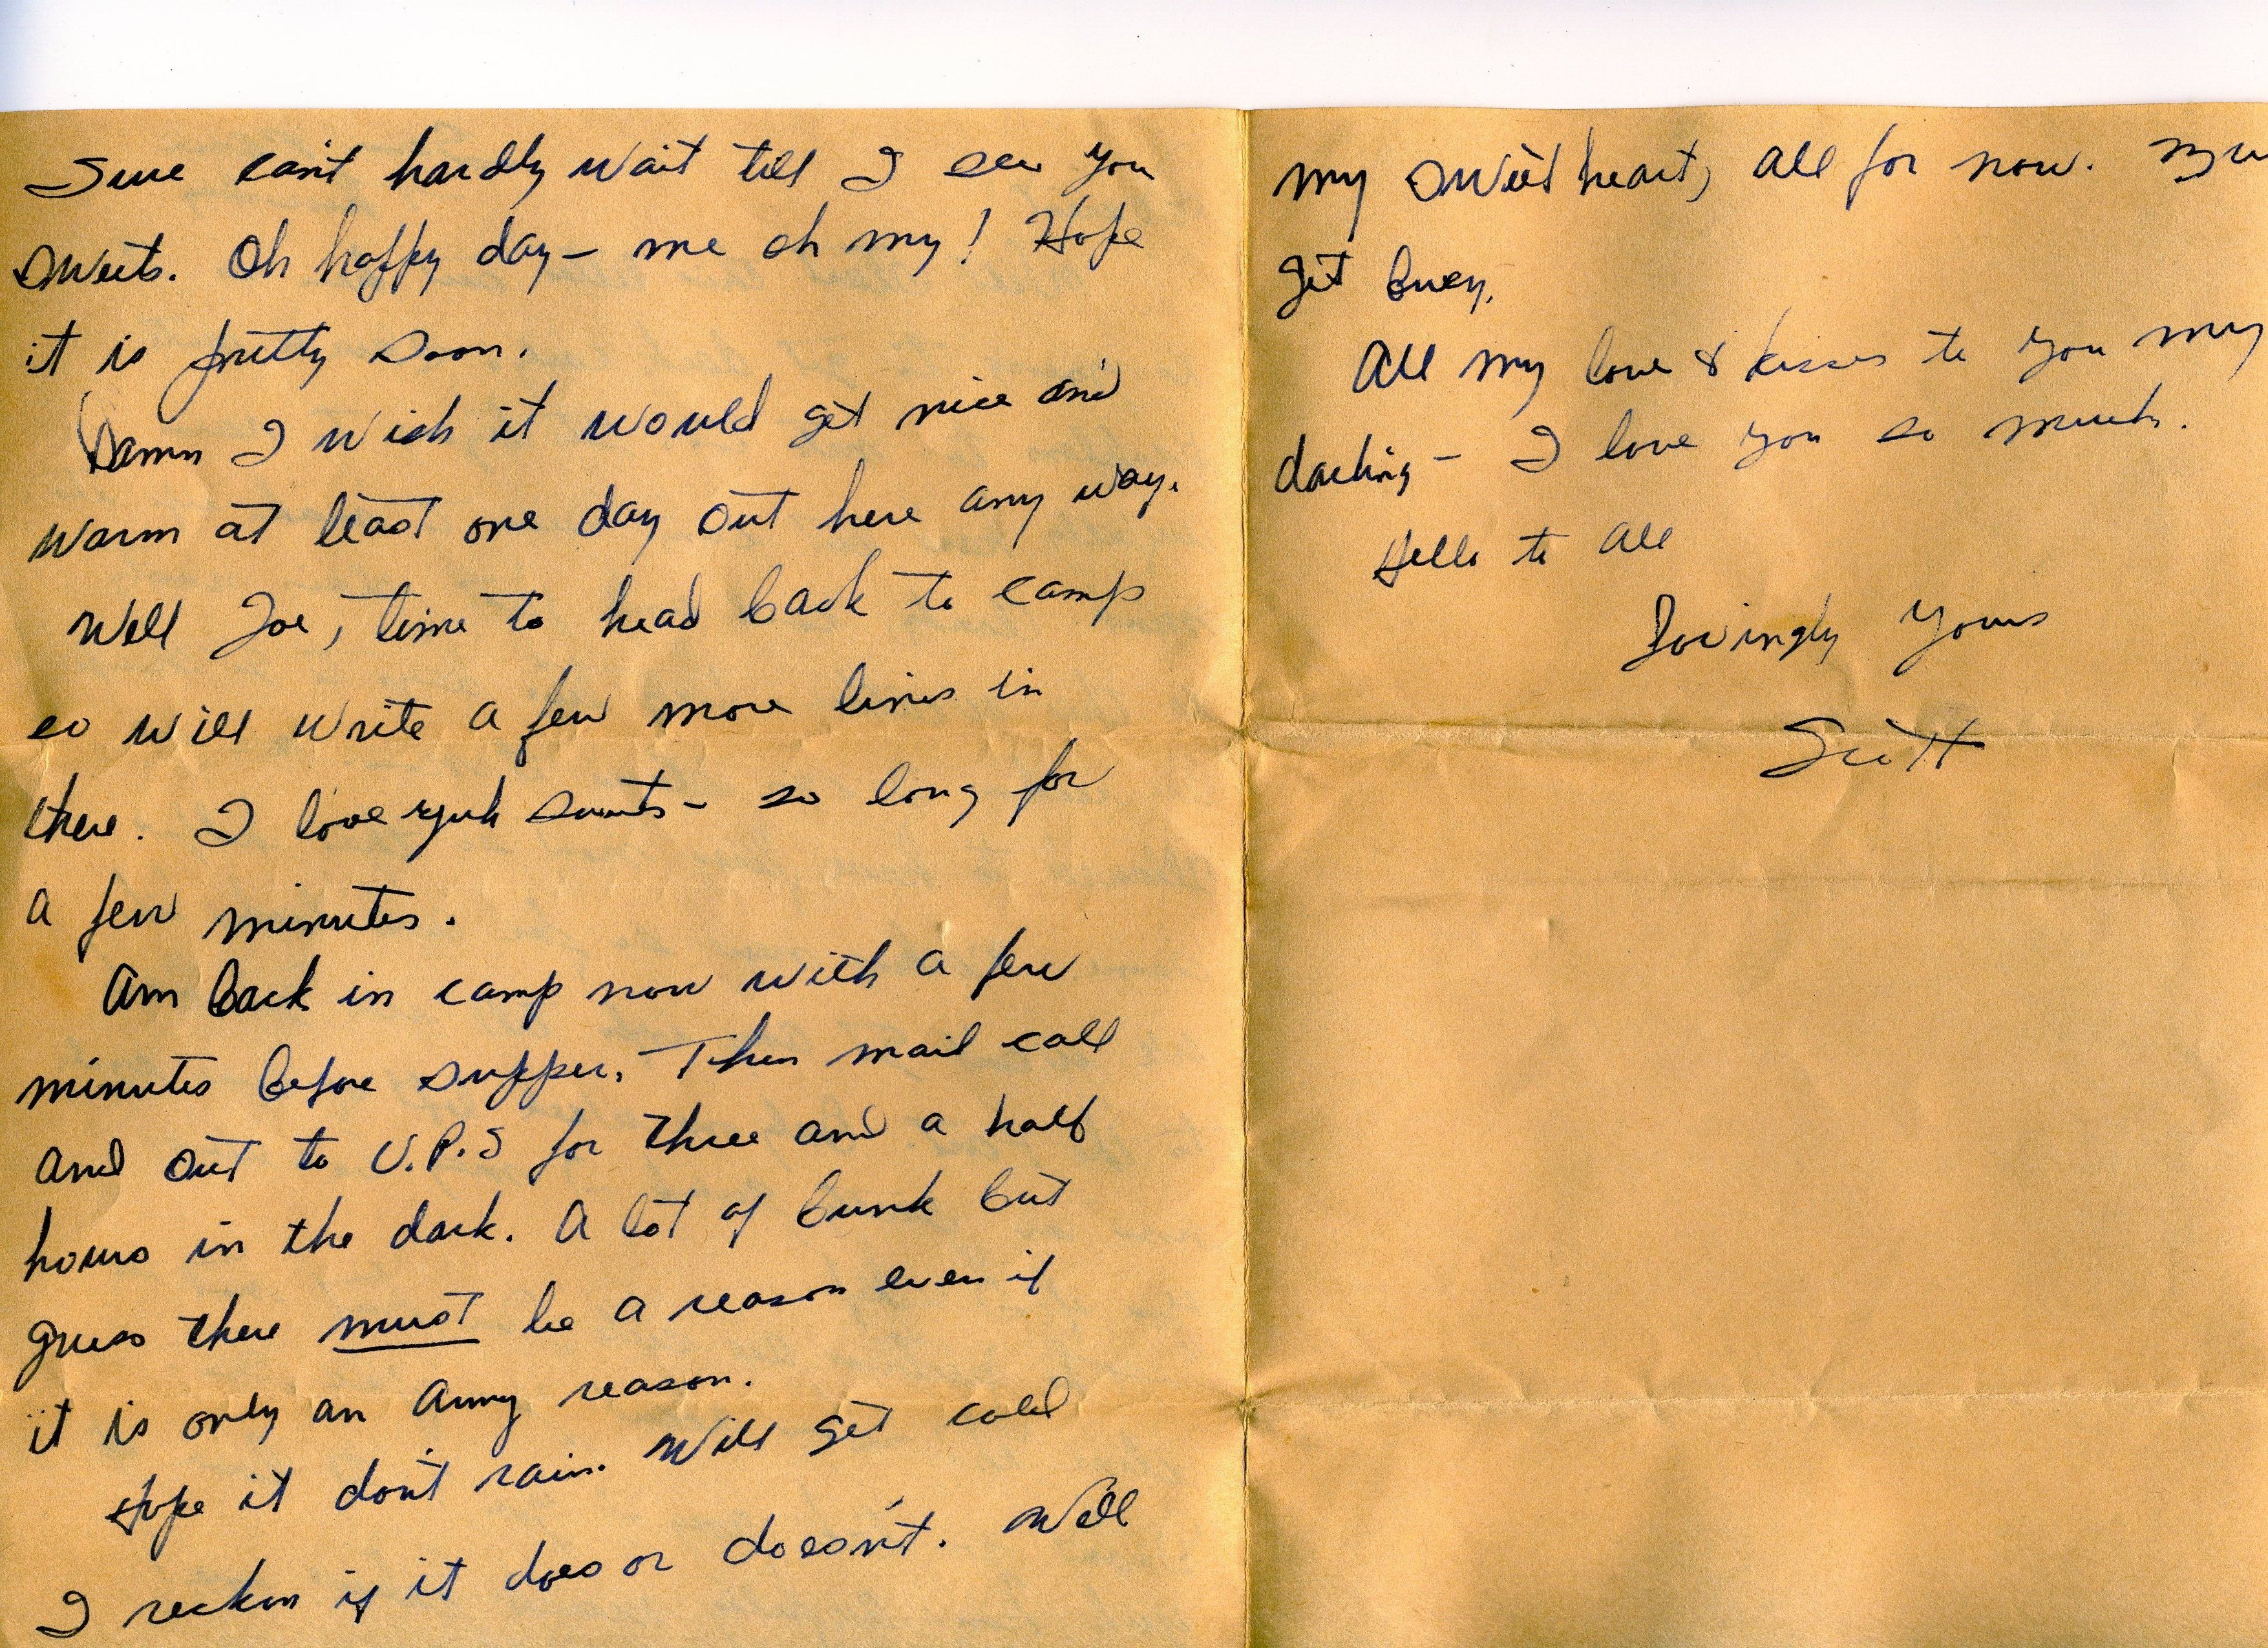 Sure can't hardly wait till I see you
sweets. Oh happy day - me oh my! Hope
it is pretty soon.
Damn I wish it would get nice and
warm at least one day out here any way.
Well Joe, time to head back to camp
so will write a few more lines in
there. I love yuh sweets - so long for
a few minutes.
Am back in camp now with a few
minutes before supper. Then mail call
and out to U.P.S for three and a half
hours in the dark. A lot of bunk but
guess there must be a reason even if
it is only an Army reason.
Hope it don't rain. Will get cold
I reckon if it does or doesn't. Well
my sweetheart, all for now.
get busy.
All my love & kisses to you my
darling - I love you so much.
Hello to all
Lovingly Yours
Scott